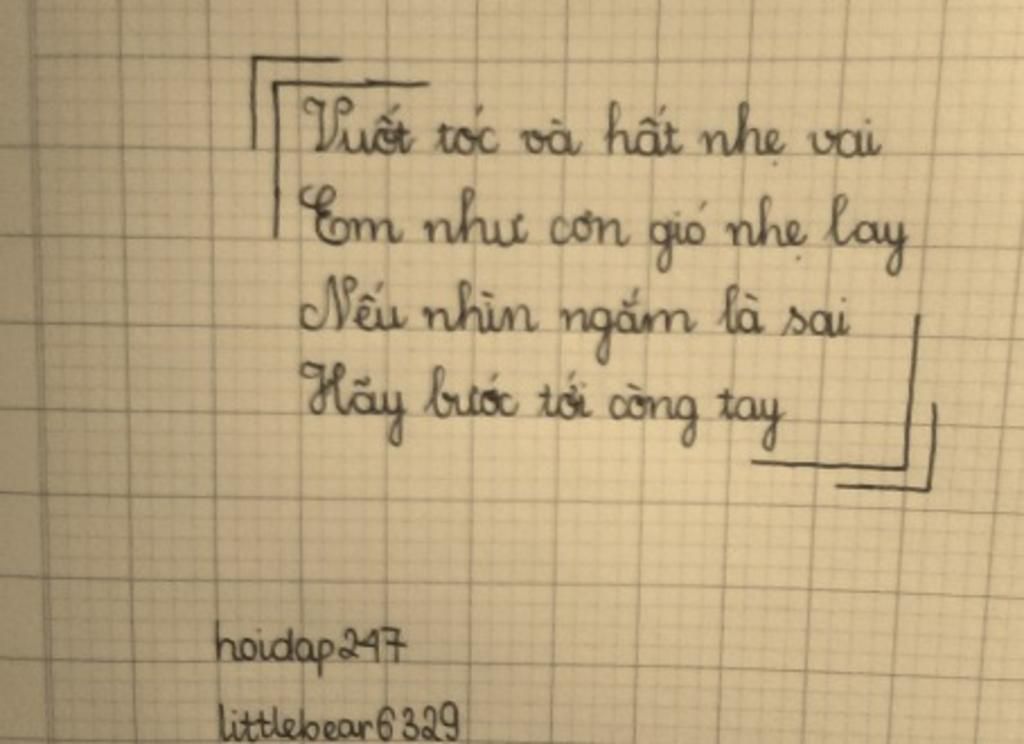 Vuốt tóc và hất nhẹ vai
Em như cơn gió nhẹ lay
Nếu nhìn ngắm là sai
Hãy bước tới còng tay
hoidap247
littlebear6329